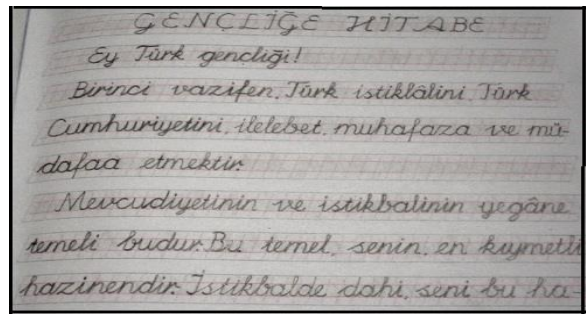 GENÇLİĞE HİTABE
Ey Türk gençliği!
Birinci vazifen, Türk istiklâlini, Türk
Cumhuriyetini, ilelebet, muhafaza ve mü-
dafaa etmektir.
Mevcudiyetinin ve istikbalinin yegâne
temeli budur. Bu temel, senin, en kıymetli
hazinendir. İstikbalde dahi, seni bu ha-